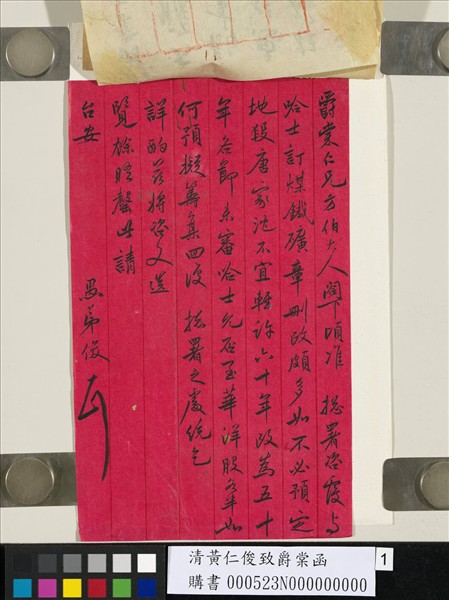 爵棠仁兄方伯大人閣下頃准 總署咨覆与
哈士訂煤鐵礦章刪改頗多如不必預定
地段唐家沱不宜轉許六十年改為五十
年各節未審哈士允否至華洋股分本如
何預擬籌集回復 總署之處統乞
詳酌茲將咨文送
覽餘晤罄此請
台安
愚弟俊
清黃仁俊致爵棠函
購書 000523N000000000
1